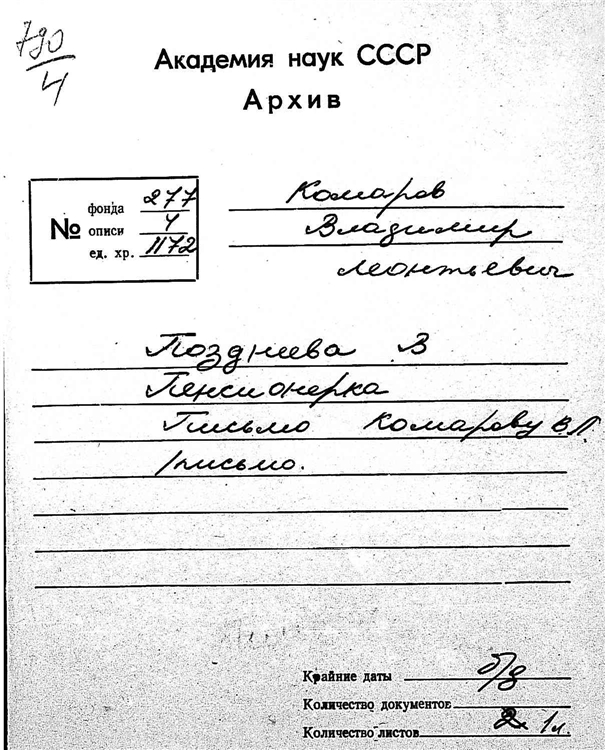 790
4
Академия наук СССР
Архив
№
фонда 277
описи 4
ед. хр. 1172
Комаров
Владимир
Леонтьевич
Позднева В
Пенсионерка
Письмо Комарову В.Л.
1 письмо.
Крайние даты б/д
Количество документов
Количество листов 1л.